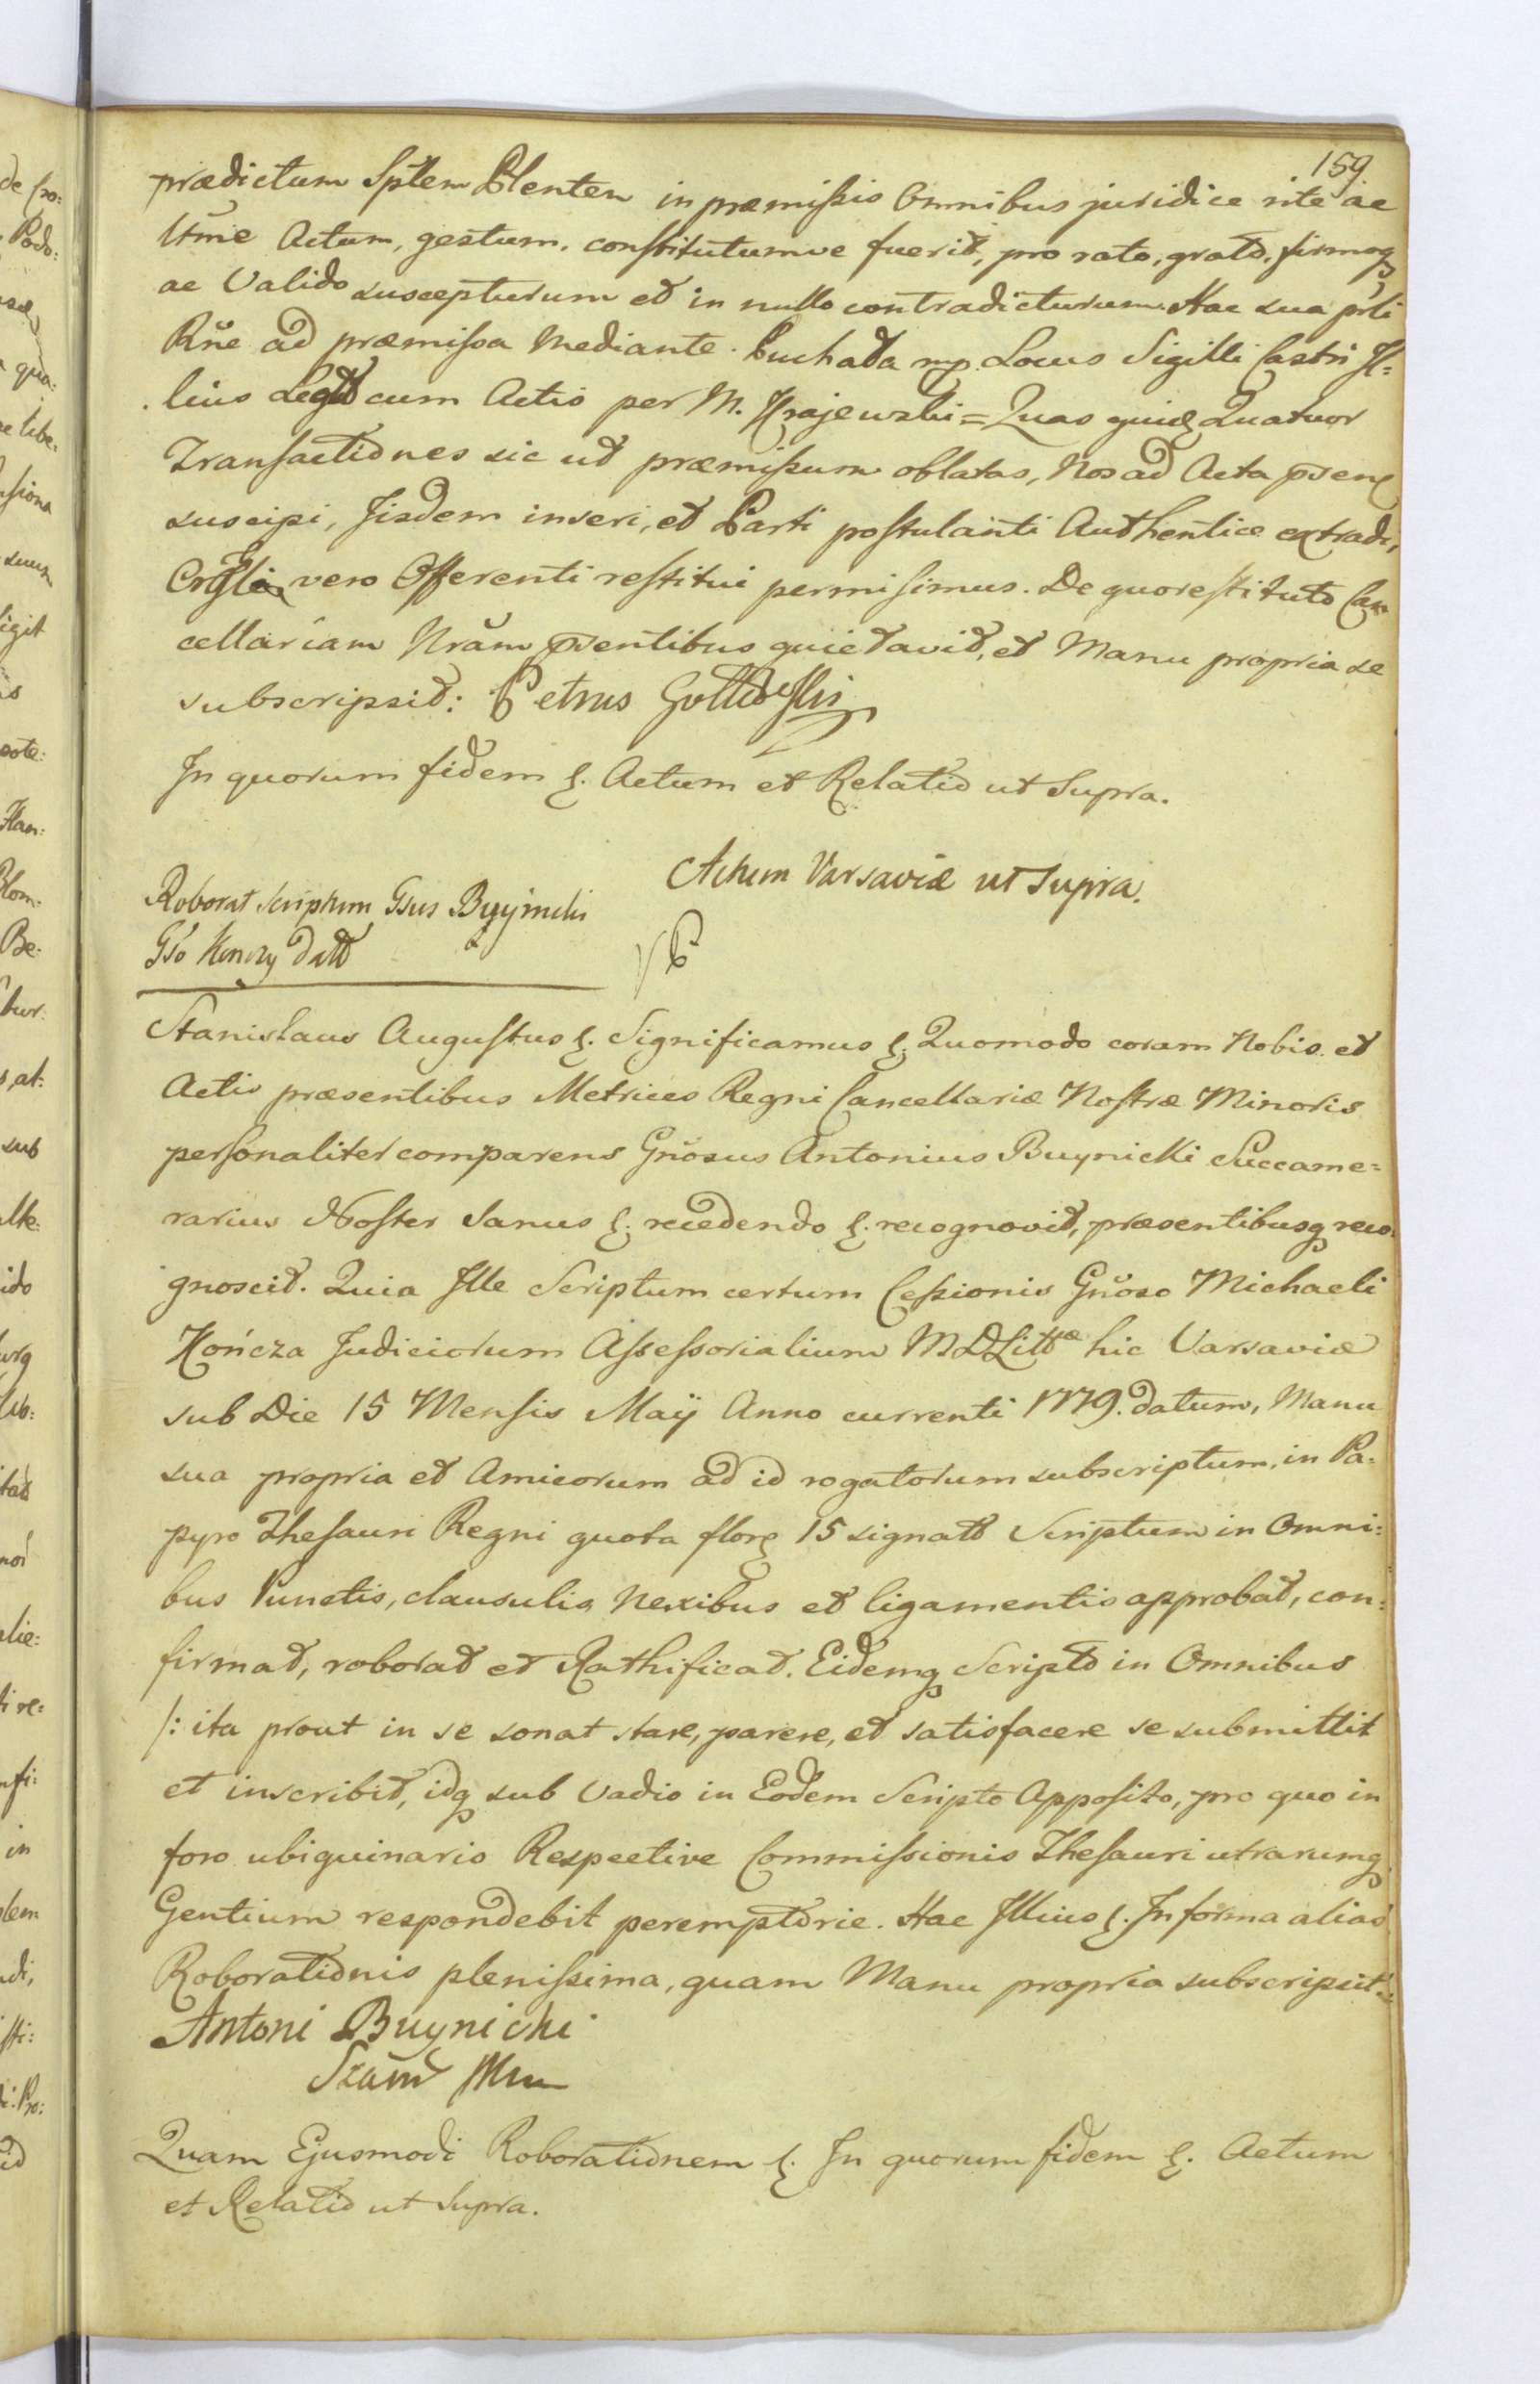 159
prædictum Sptem Plenten in præmissis Omnibus juridice rite ac
ltme Actum, gestum, constitutumve fuerit, pro rato, grato, firmoq
ac Valido suscepturum et in nullo contradicturum. Hac sua prti
Rñe ad præmissa Mediante. Puchała mp. Locus Sigilli Castri Il=
lius Legit cum Actis per M. Krajewski = Quas quid Quatuor
Transactiones sic ut præmissum oblatas, Nos ad Acta psen
suscipi, Iisdem inseri, et Parti postulanti Authentice extradi,
vero Offerenti restitui permisimus. De quo restituto Can
cellariam Nrãm psentibus quietavit, et Manu propria se
subscripsit: Petrus
In quorum fidem &. Actum et Relatio ut Supra.
Actum Varsaviæ ut Supra.
Roborat Scriptum Gsus Buynicki
Gso Konczy
Stanislaus Augustus &. Significamus &. Quomodo coram Nobis et
Actis præsentibus Metrices Regni Cancellariæ Nostræ Minoris
personaliter comparens Gnõsus Antonius Buynicki Succame=
rarius Noster Sanus &. recedendo &. recognovit, præsentibusq reco
gnoscit. Quia Ille Scriptum certum Cessionis Gnõso Michaeli
Kończa Judiciorum Assessorialium MDLittæ hic Varsaviæ
sub Die 15 Mensis Maÿ Anno currenti 1779. datum, Manu
sua propria et Amicorum ad id rogatorum subscriptum, in Pa=
pyro Thesauri Regni quota flor 15 signato Scriptum in Omni=
bus Punctis, clausulis Nexibus et ligamentis approbat, con=
firmat, roborat et Rathificat. Eidemq Scripto in Omnibus
/: ita prout in se sonat stare, parere, et satisfacere se submittit
et inscribit, idq sub Vadio in Eodem Scripto Apposito, pro quo in
foro ubiquinario Respective Commissionis Thesauri utrarumq
Gentium respondebit peremptorie. Hac Illius &. In forma alias
Roborationis plenissima, quam Manu propria subscripsit.:
Antoni Buynicki
Quam Ejusmodi Roborationem &. In quorum fidem &. Actum
et Relatio ut Supra.